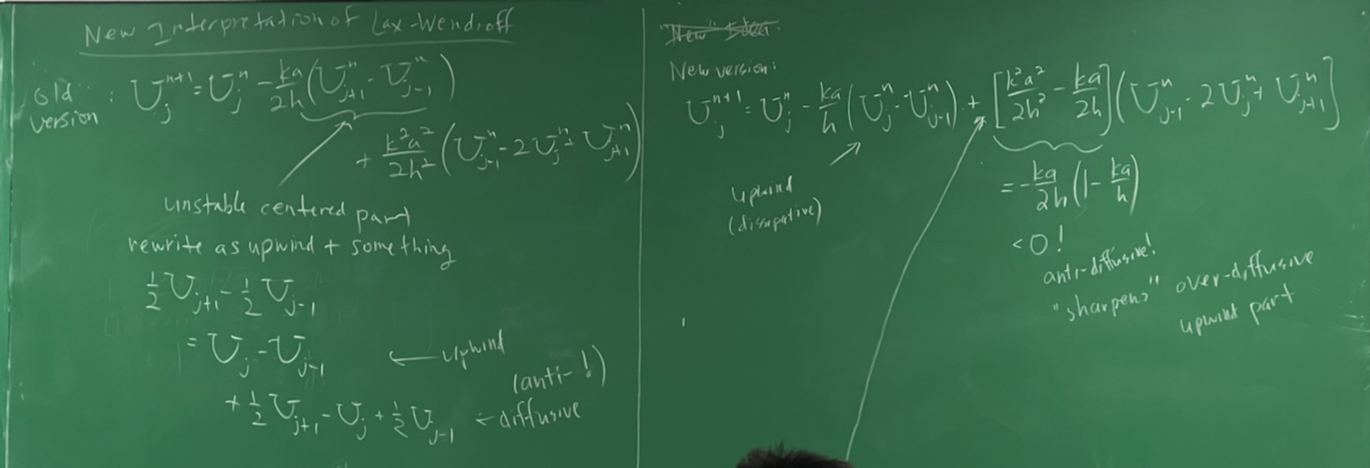 New Interpretation of Lax-Wendroff
old version : U_j^{n+1} = U_j^n - \frac{ka}{2h}(U_{j+1}^n - U_{j-1}^n)
+ \frac{k^2a^2}{2h^2}(U_{j-1}^n - 2U_j^n + U_{j+1}^n)
unstable centered part
rewrite as upwind + something
\frac{1}{2}U_{j+1} - \frac{1}{2}U_{j-1}
= U_j - U_{j-1} ← upwind
(anti-!)
+ \frac{1}{2}U_{j+1} - U_j + \frac{1}{2}U_{j-1} ← diffusive
New version:
U_j^{n+1} = U_j^n - \frac{ka}{h}(U_j^n - U_{j-1}^n) + [\frac{k^2a^2}{2h^2} - \frac{ka}{2h}](U_{j-1}^n - 2U_j^n + U_{j+1}^n]
upwind
(dissipative)
= -\frac{ka}{2h}(1 - \frac{ka}{h})
< 0!
anti-diffusive!
"sharpens" over-diffusive
upwind part